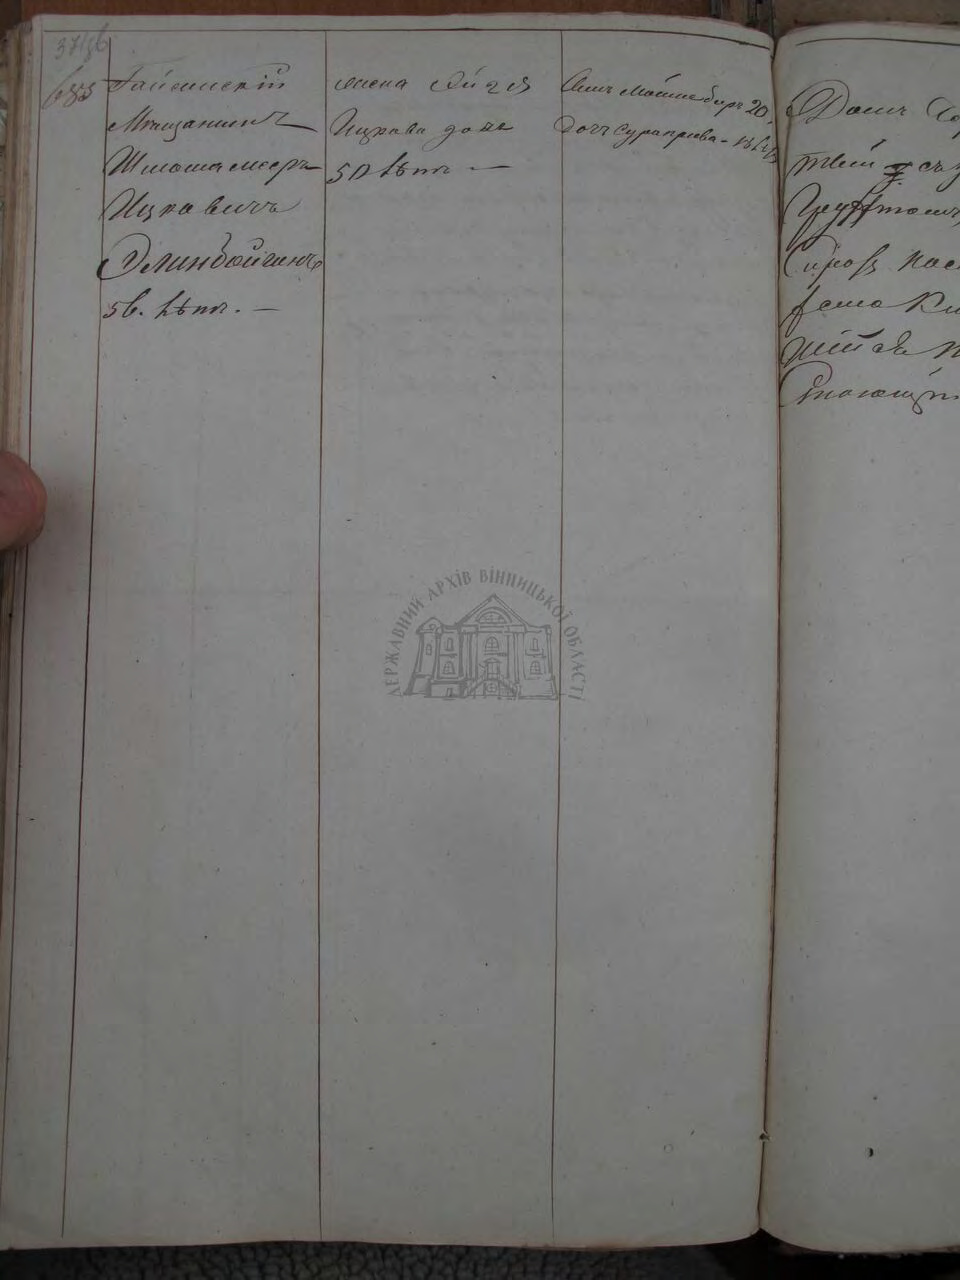 37/36
633
Гайсинскій
Мѣщанинъ
Шлёма мееръ
Ицковичъ
Элинбойгинъ
56. лѣтъ. —
жена Хайзя
Ицкова дочь
50 лѣтъ —
Сынъ Мошко беръ 20.
дочь Сурапрева - 13 лѣт
Домъ
тей съ
Грунтомъ,
Сыроѣ
ДЕРЖАВНИЙ АРХІВ ВІННИЦЬКОЇ ОБЛАСТІ